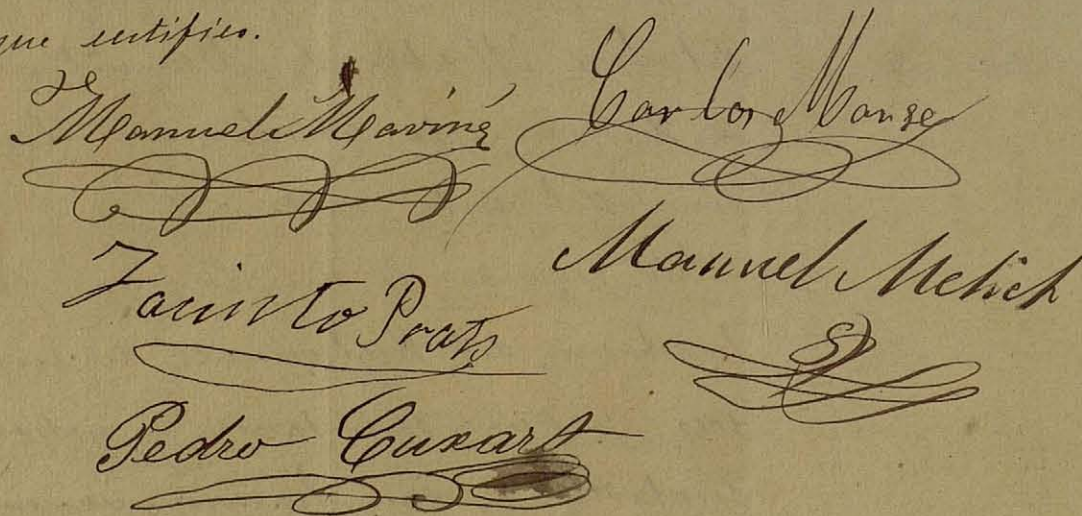 que certifico.
Manuel Mariné
Carlos Monge
Jacinto Prats
Manuel Melich
Pedro Cuxart